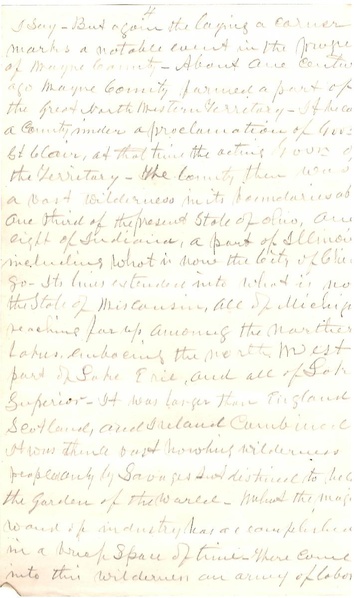 4
I Say - But again the laying a corner
marks a notable event in the progre
of Wayne County - About one centur
ago Wayne County formed a part of
the Great North Western Territory - It beca
a County under a proclamation of Gov
St Clair, at that time the acting Govr of
the Territory - The County then was
a vast wilderness in its boundaries
one third of the present State of Ohio, an
eight of Indiana, a part of Illinoi
including what is now the City of Chic
go - Its lines extended into what is no
the State of Wisconsin, all of Michig
reaching far up among the Norther
Lakes, embracing the north West
part of Lake Erie, and all of Lak
Superior - It was larger than England
Scotland, and Ireland Combined
It was then a vast howling wilderness
people only by Savages but destined to be
the Garden of the World - What the magi
wand of industry has accomplished
in a brief Space of time - There came
into this wilderness an army of labor